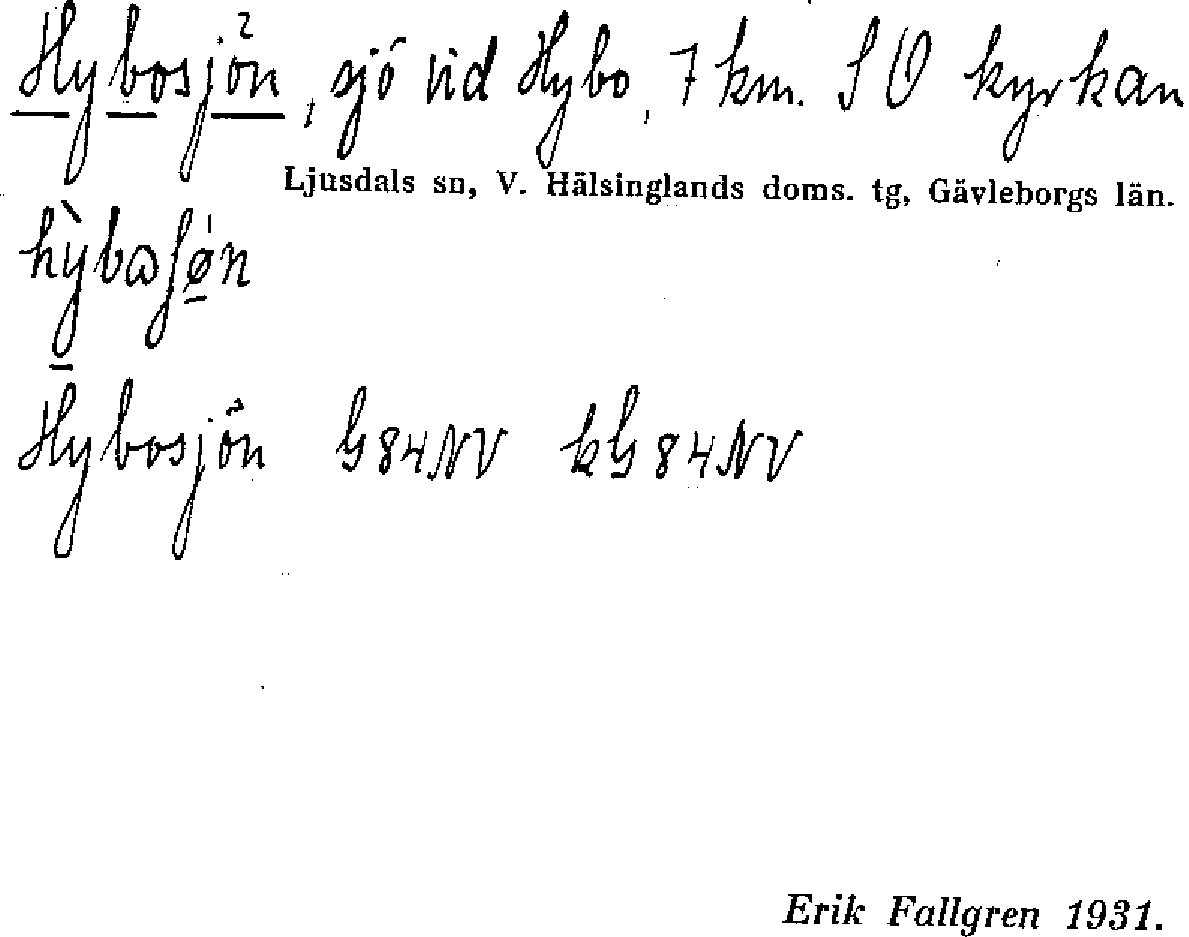 Hybosjön, sjö vid Hybo, 7 km. SO kyrkan
Ljusdals sn, V. Hälsinglands doms. tg, Gävleborgs län.
Hybosjön G84NV kG84NV
Erik Fallgren 1931.